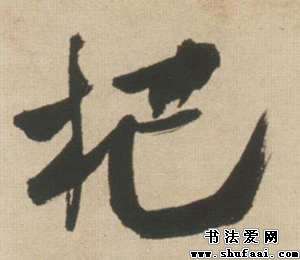 杞
书法爱网
www.shufaai.com